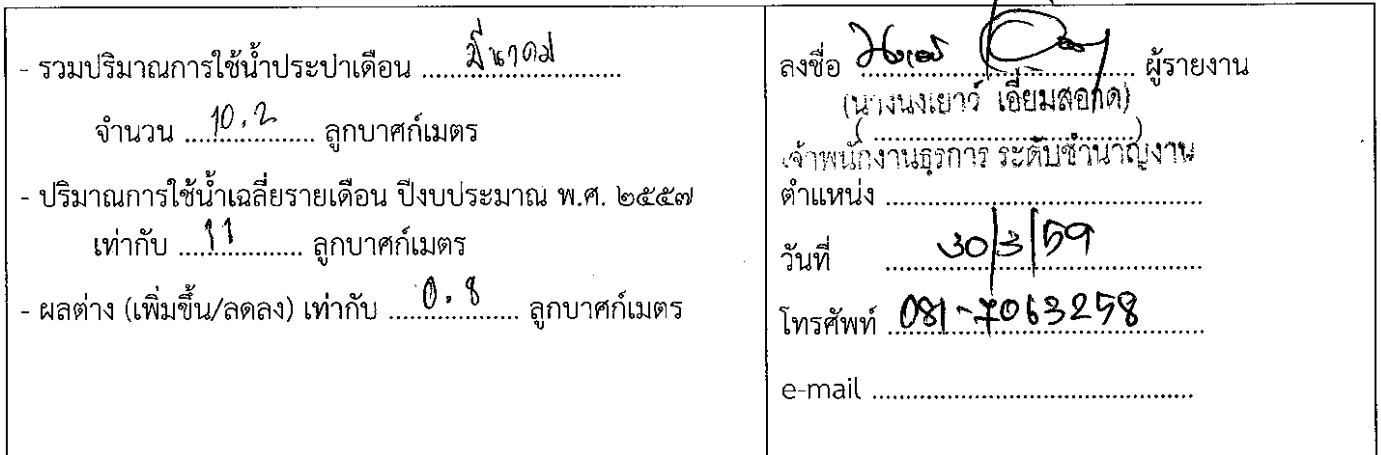 - รวมปริมาณการใช้น้ำประปาเดือน ....มีนาคม....
จำนวน ....10.2.... ลูกบาศก์เมตร
- ปริมาณการใช้น้ำเฉลี่ยรายเดือน ปีงบประมาณ พ.ศ. ๒๕๕๗
เท่ากับ ....11.... ลูกบาศก์เมตร
- ผลต่าง (เพิ่มขึ้น/ลดลง) เท่ากับ ....0.8.... ลูกบาศก์เมตร
ลงชื่อ ........ ผู้รายงาน
(นางนงเยาว์ เอี่ยมสอาด)
(........)
เจ้าพนักงานธุรการ ระดับชำนาญงาน
ตำแหน่ง ........
วันที่ 30/3/59
โทรศัพท์ 081-7063258
e-mail ........